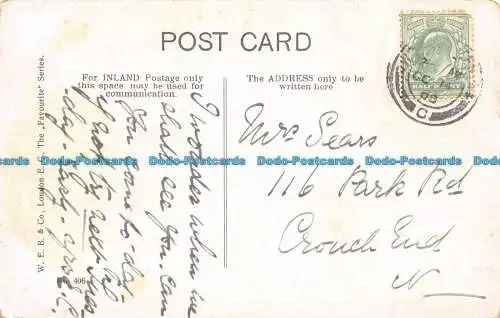 POST CARD
For INLAND Postage only
this space may be used for
communication.
The ADDRESS only to be
written here
W. E. B. & Co., London E. C. The „Favourite“ Series.
406
I wonder when we
shall see you. Can
you come to-day
if not try next Tues
day
Mrs Sears
116 Park Rd
Crouch End
N
C
HALFPENNY
Ideas-Postcards Ideas-Postcards Ideas-Postcards Ideas-Postcards